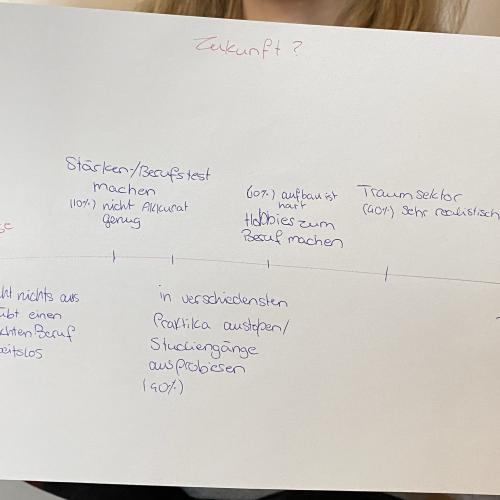 Zukunft?
Stärken/Berufstest
machen
(10%) nicht Akkurat
genug
(10%) aufbau ist
hart
Hobbies zum
Beruf machen
Traumsektor
(40%) Sehr realistisch
nichts aus
übt einen
Beruf
in verschiedensten
Praktika austoben/
Studiengänge
ausprobieren
(40%)